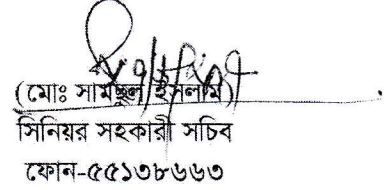 (মোঃ সামছুল ইসলাম)
সিনিয়র সহকারী সচিব
ফোন-৫৫১৩৮৬৬৩